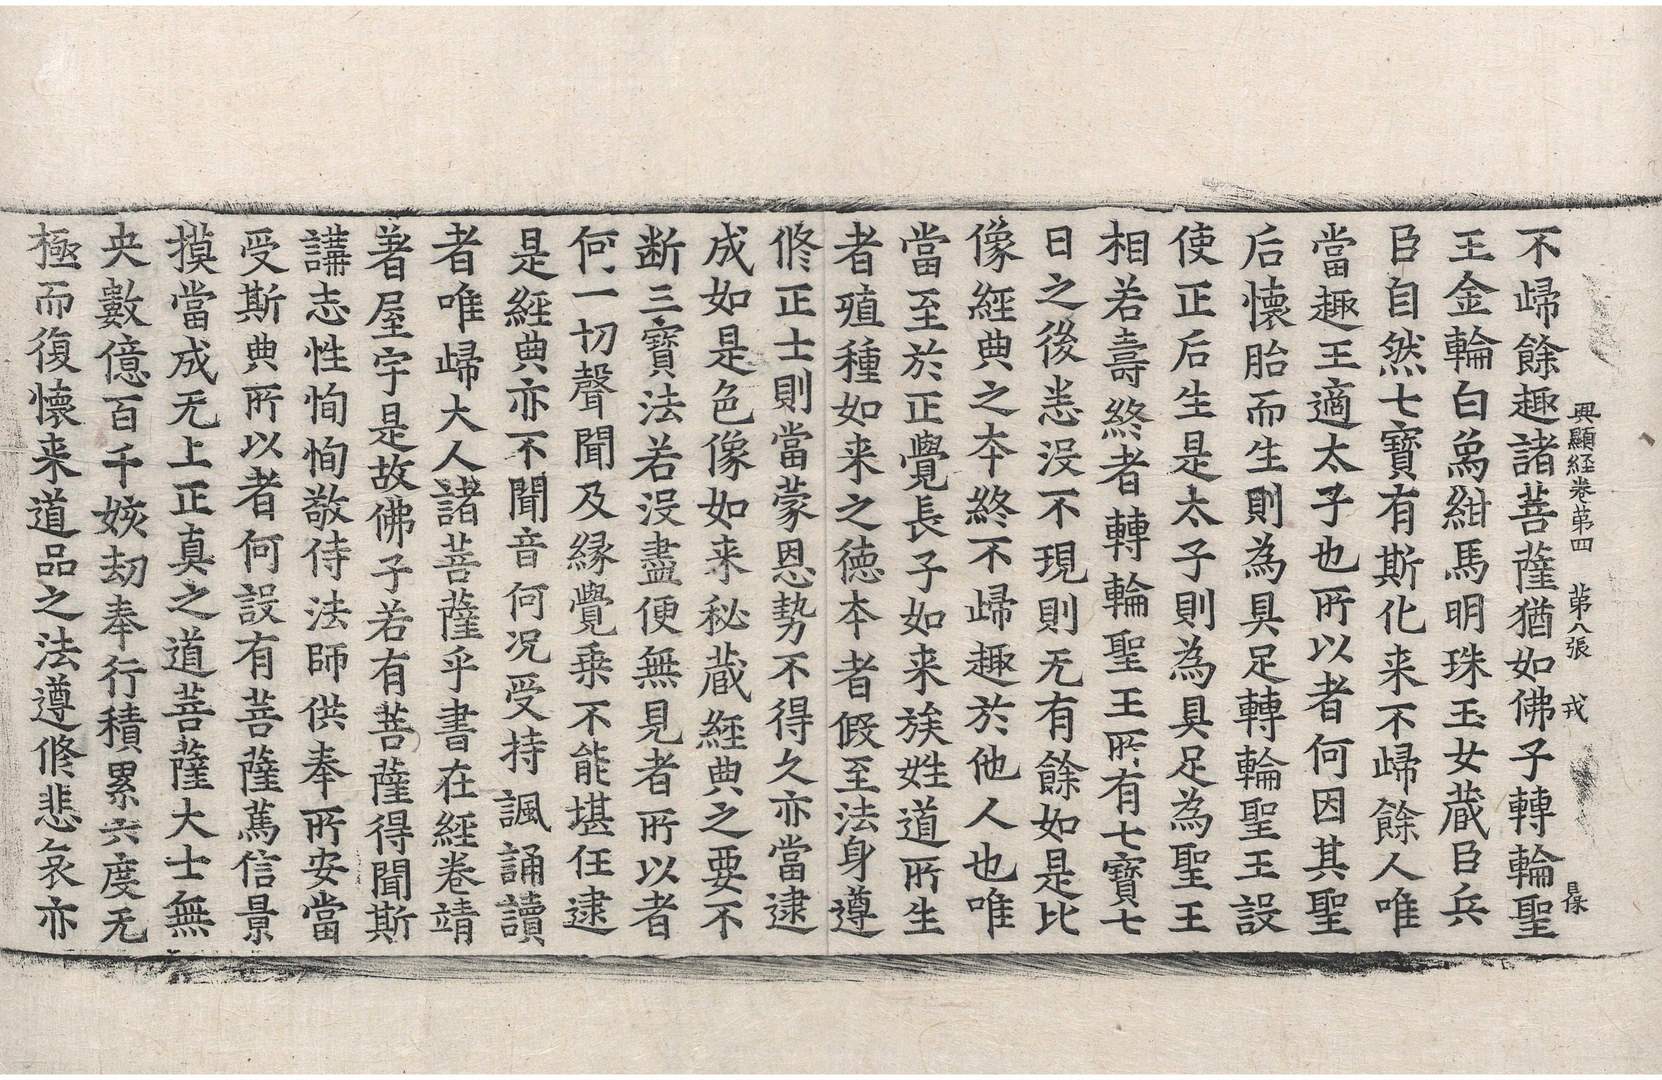 興顯経卷苐四　苐八張　戎　㝵保
不歸餘趣諸菩薩猶如佛子轉輪聖
王金輪白𤉢紺馬明珠玉女蔵臣兵
臣自然七寳有斯化来不歸餘人唯
當趣王適太子也所以者何因其聖
后懷胎而生則為具足轉輪聖王設
使正后生是太子則為具足為聖王
相若壽終者轉輪聖王所有七寳七
日之後悉没不現則无有餘如是比
像經典之夲終不歸趣於他人也唯
當至於正覺長子如来族姓道所生
者殖種如来之徳夲者假至法身遵
修正士則當蒙恩勢不得久亦當逮
成如是色像如来秘蔵經典之要不
断三寳法若没盡便無見者所以者
何一切聲聞及縁覺乗不能堪任逮
是經典亦不聞音何况受持諷誦讀
者唯歸大人諸菩薩乎書在經卷靖
著屋宇是故佛子若有菩薩得聞斯
講志性恂恂敬侍法師供奉所安當
受斯典所以者何設有菩薩篤信景
摸當成无上正真之道菩薩大士無
央數億百千姟劫奉行積累六度无
極而復懷来道品之法遵修悲哀亦